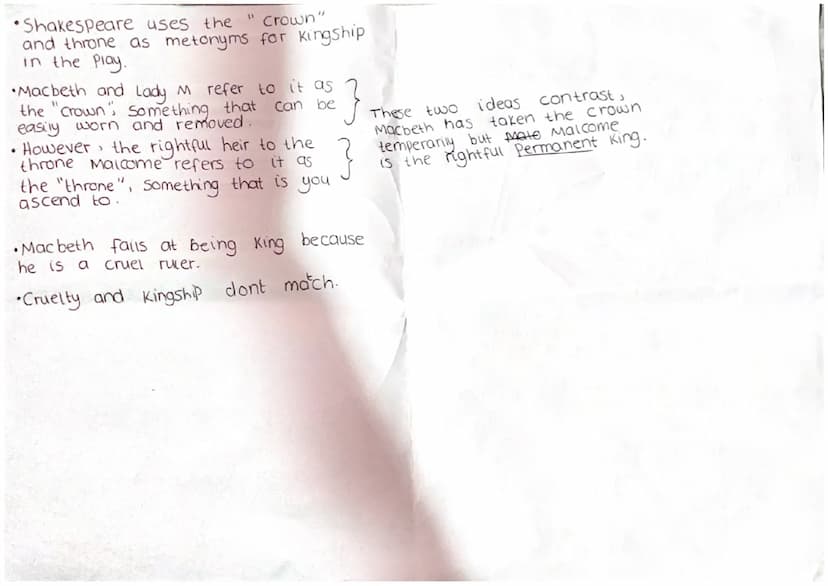 •Shakespeare uses the "crown"
and throne as metonyms for kingship
in the Play.
•Macbeth and Lady M refer to it as
the "crown", something that can be
easily worn and removed.
• However, the rightful heir to the
throne Malcome refers to it as
the "throne", something that is you
ascend to.
These two ideas contrast,
Macbeth has taken the crown
temperarily but Malcome
is the rightful Permanent King.
•Macbeth fails at being King because
he is a cruel ruler.
•Cruelty and Kingship dont match.